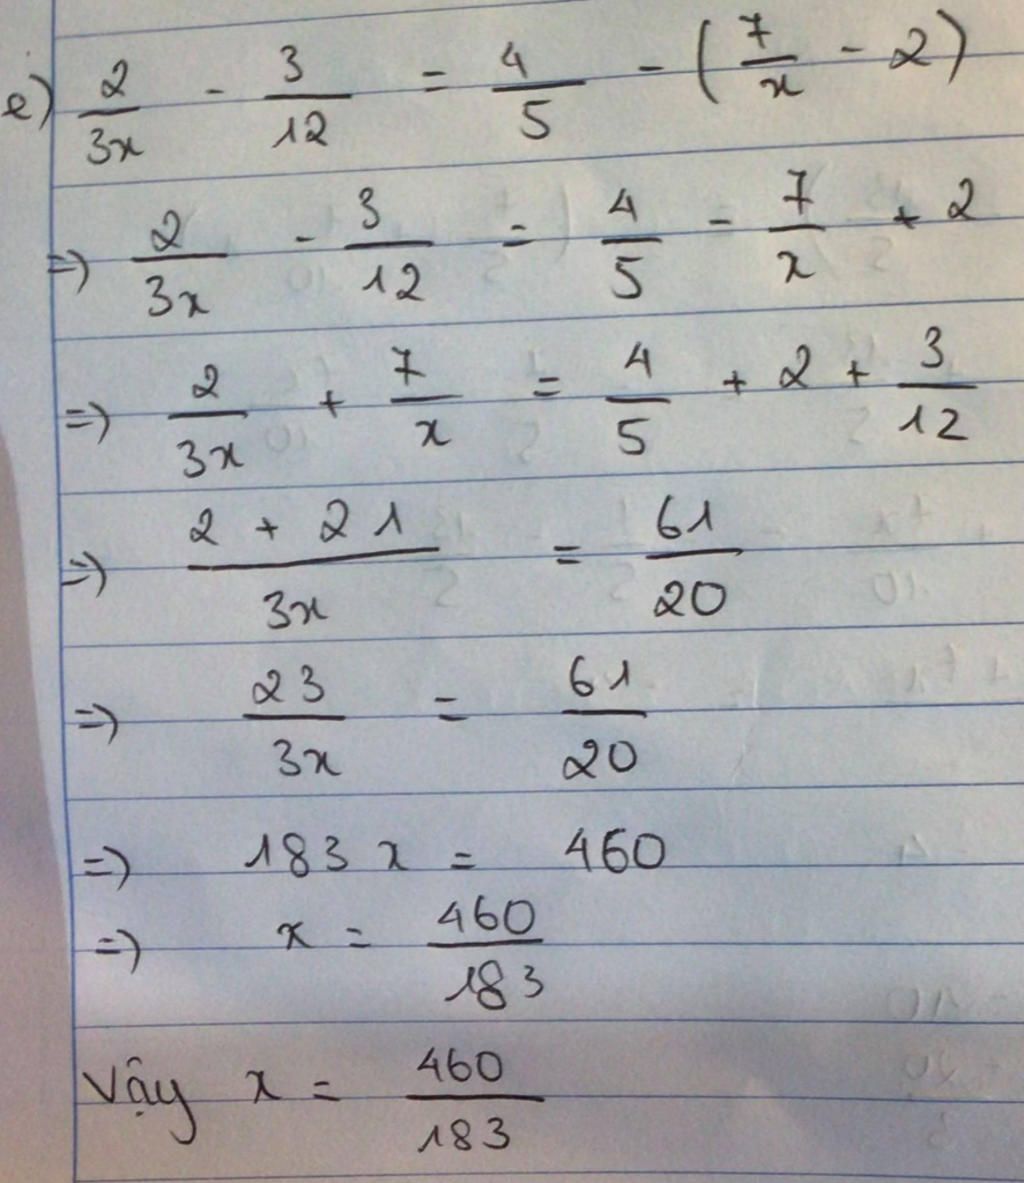 e) 2/3x - 3/12 = 4/5 - (7/x - 2)
=) 2/3x - 3/12 = 4/5 - 7/x + 2
=) 2/3x + 7/x = 4/5 + 2 + 3/12
=) 2 + 21/3x = 61/20
=) 23/3x = 61/20
=) 183x = 460
=) x = 460/183
Vậy x = 460/183